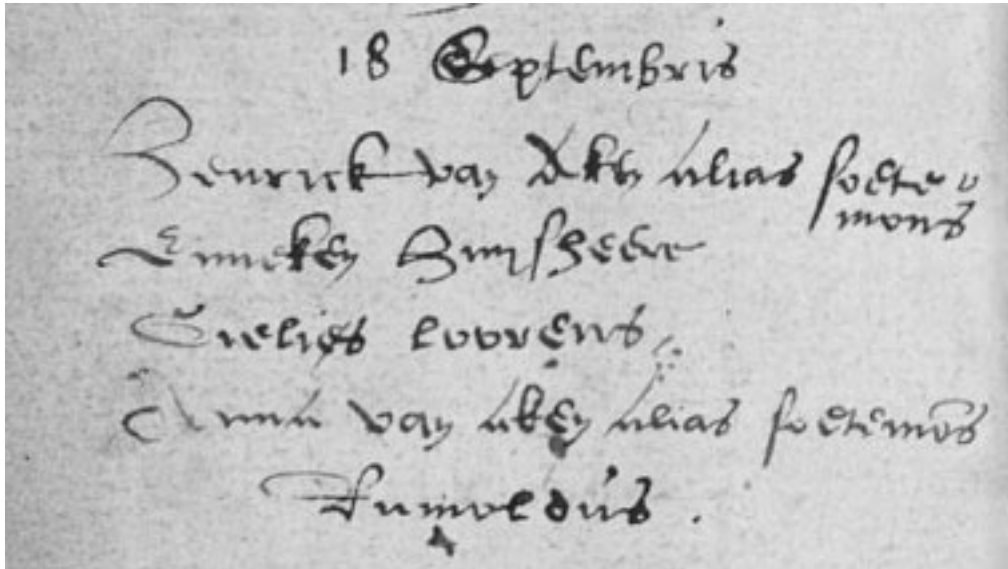 18 Septembris
Henrick van Aken alias soete-
mons
Enneken
Gielies loorens
Anna van aken alias soetemo̅s
Rumoldus .